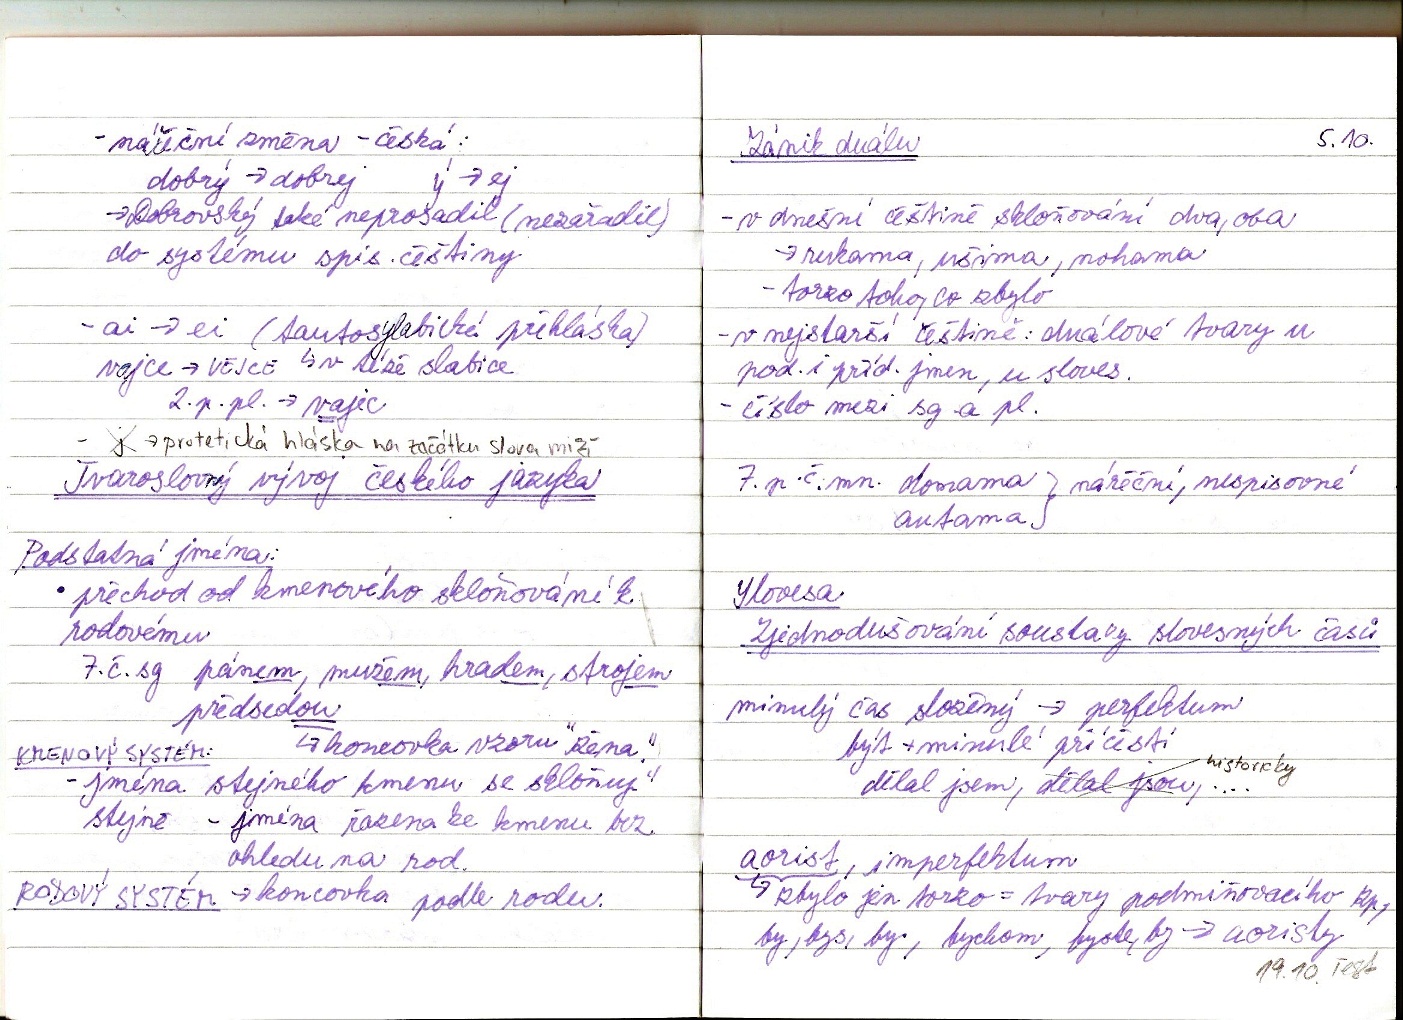 - nářeční změna - česká:
dobrý → dobrej ý → ej
→ Dobrovský také neprosadil (nezařadil)
do systému spis. češtiny
- ai → ei (tautosylabická přehláska)
vajce → VEJCE ↳ v téže slabice
2. p. pl. → vajec
- j → protetická hláska na začátku slova mizí
Tvaroslovný vývoj českého jazyka
Podstatná jména:
• přechod od kmenového skloňování k
rodovému
7. č. sg pánem, mužem, hradem, strojem
předsedou
↳ koncovka vzoru "žena"
KMENOVÝ SYSTÉM:
- jména stejného kmenu se skloňují
stejně - jména řazena ke kmenu bez
ohledu na rod.
RODOVÝ SYSTÉM → koncovka podle rodu.
Zánik duálu 5.10.
- v dnešní češtině skloňování dva, oba
→ rukama, ušima, nohama
- torzo toho, co zbylo
- v nejstarší češtině: duálové tvary u
pod. i příd. jmen, u sloves.
- číslo mezi sg a pl.
7. p. č. mn. domama } nářeční, nespisovné
autama
Slovesa
Zjednodušování soustavy slovesných časů
minulý čas složený → perfektum
být + minulé příčestí
historicky
dělal jsem, dělal jsou, ....
aorist, imperfektum
↳ zbylo jen torzo = tvary podmiňovacího zp.,
by, bys, by, bychom, byste, by → aoristy
19.10. Test